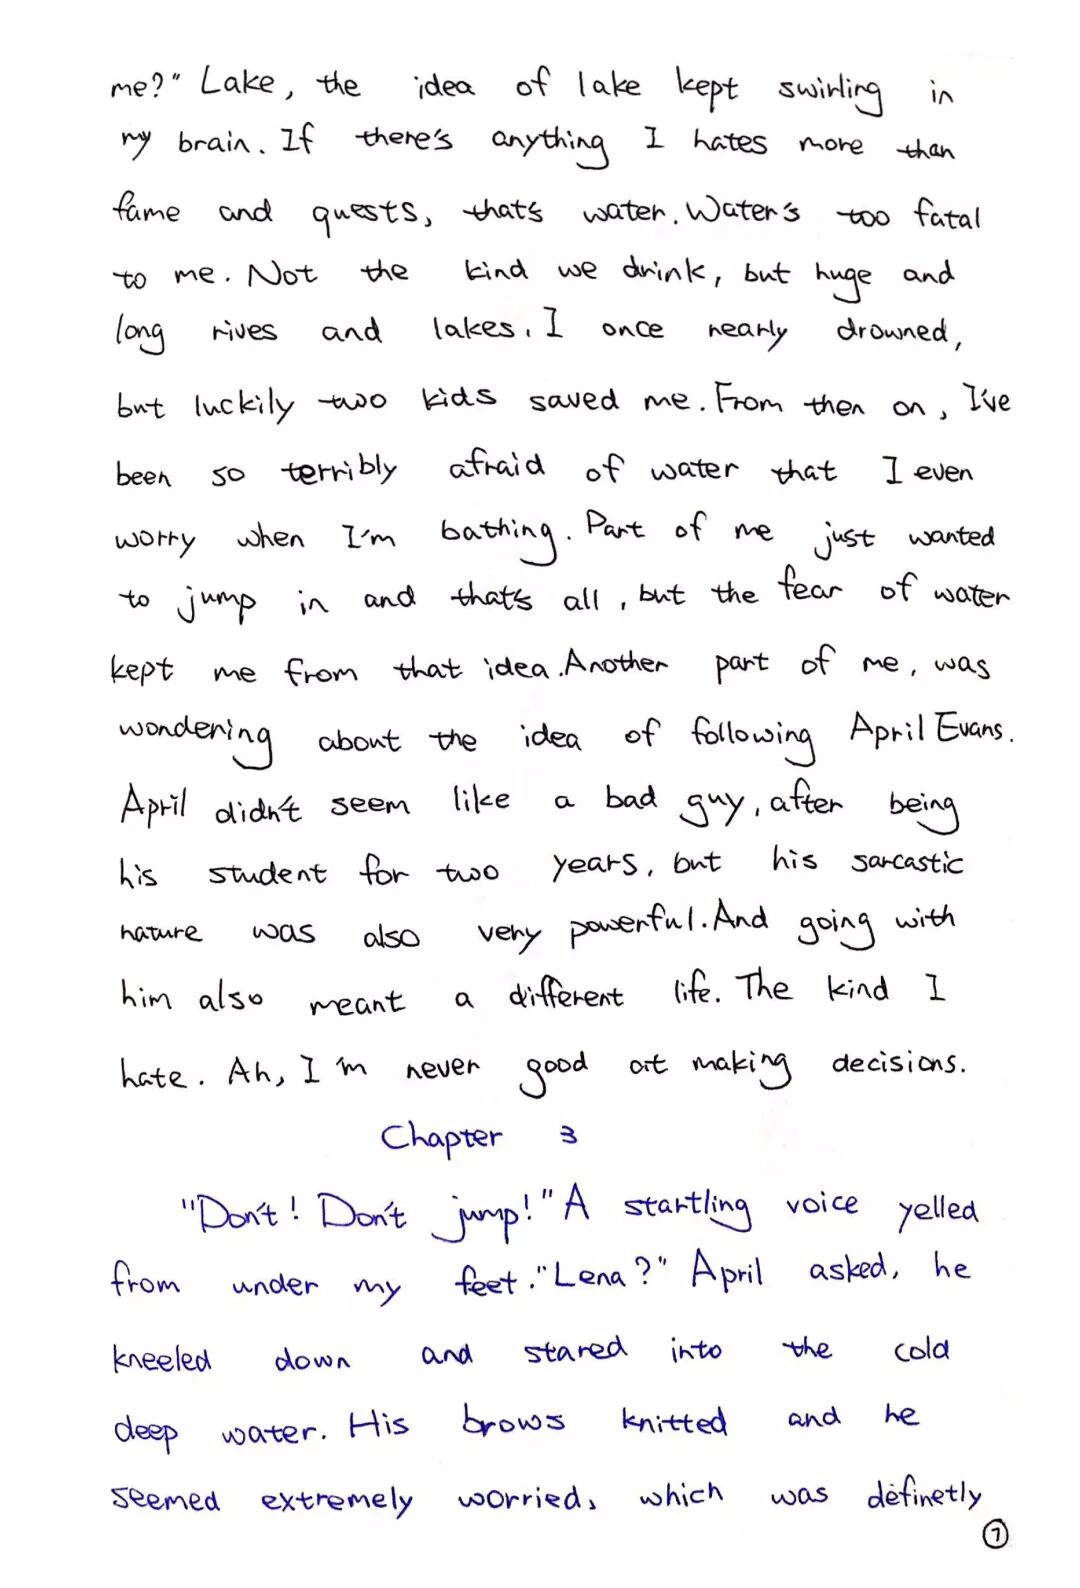 me?" Lake, the idea of lake kept swirling in
my brain. If there's anything I hates more than
fame and quests, that's water. Water's too fatal
to me. Not the kind we drink, but huge and
long rives and lakes. I once nearly drowned,
but luckily two kids saved me. From then on, I've
been so terribly afraid of water that I even
worry when I'm bathing. Part of me just wanted
to jump in and that's all, but the fear of water
kept me from that idea. Another part of me, was
wondering about the idea of following April Evans.
April didn't seem like a bad guy, after being
his student for two years, but his sarcastic
nature was also very powerful. And going with
him also meant a different life. The kind I
hate. Ah, I'm never good at making decisions.
Chapter 3
"Don't! Don't jump!" A startling voice yelled
from under my feet. "Lena?" April asked, he
kneeled down and stared into the cold
deep water. His brows knitted and he
seemed extremely worried, which was definetly
7